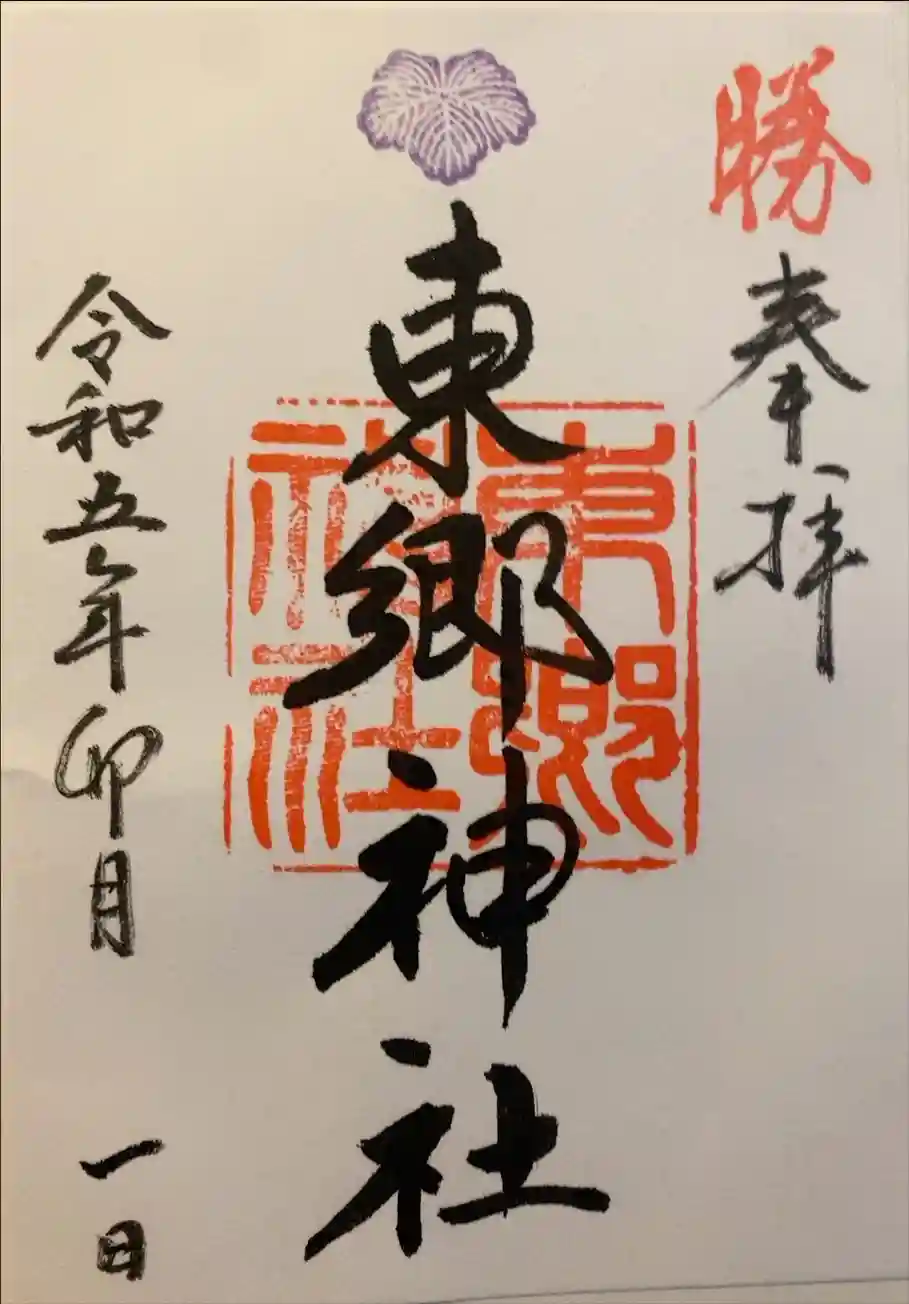 勝
奉拝
東郷神社
東郷神社
令和五年卯月 一日